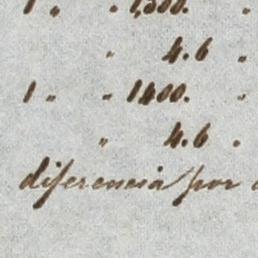 1 " " 1,300. "
" 4.6 "
1 " " 1400. "
" 4.6 "
diferencia por